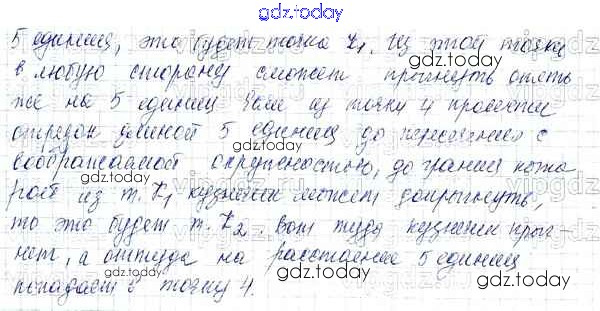 gdz.today
5 единиц, это будет точка K₁. Из этой точки
gdz.today
в любую сторону сможет прыгнуть опять
же на 5 единиц. Если из точки 4 провести
отрезок длиной 5 единиц до пересечения с
воображаемой окружностью, до границ кото
рой из т. K₁ кузнечик может допрыгнуть,
gdz.today
то это будет т. K₂. Вот туда кузнечик прыг-
нет, а оттуда на расстояние 5 единиц
gdz.today
попадает в точку 4.
gdz.today